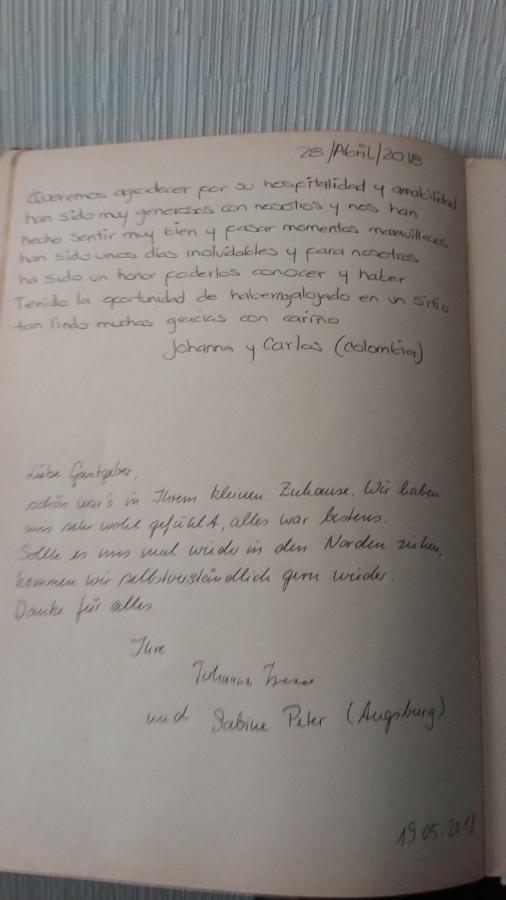 28/Abril/2018
Queremos agradecer por su hospitalidad y amabilidad
han sido muy generosos con nosotros y nos han
hecho sentir muy bien y pasar momentos maravillosos
han sido unos días inolvidables y para nosotros
ha sido un honor poderlos conocer y haber
Tenido la oportunidad de habernos alojado en un sitio
tan lindo muchas gracias con cariño
Johanna y Carlos (Colombia)
Liebe Gastgeber,
schön war's in Ihrem kleinen Zuhause. Wir haben
uns sehr wohl gefühlt, alles war bestens.
Sollte es uns mal wieder in den Norden ziehen,
kommen wir selbstverständlich gern wieder.
Danke für alles
Ihre
Johanna
und Sabine Peter (Augsburg)
19.05.2018